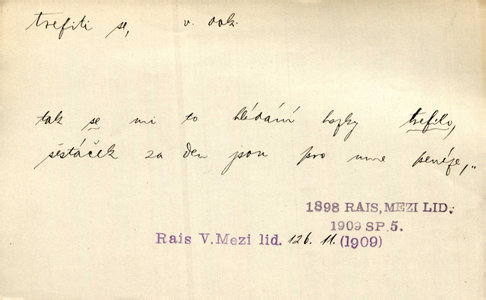 trefiti se, v. dok.
tak se mi to hlédání hojky trefilo,
šestáček za den jsou pro mne peníze,„
1898 RAIS, MEZI LID.
1909 SP. 5.
Rais V. Mezi lid. 126. 11. (1909)